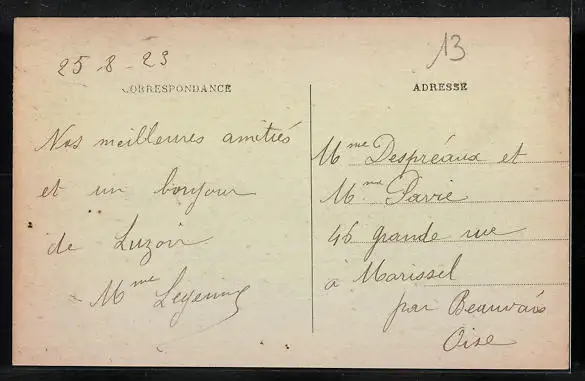 25-8-23
13
CORRESPONDANCE
Nos meilleures amitiés
et un bonjour
de Luzoir
Mme
ADRESSE
Mme Despréaux et
Mme Pavie
46 grande rue
à Marissel
par Beauvais
Oise